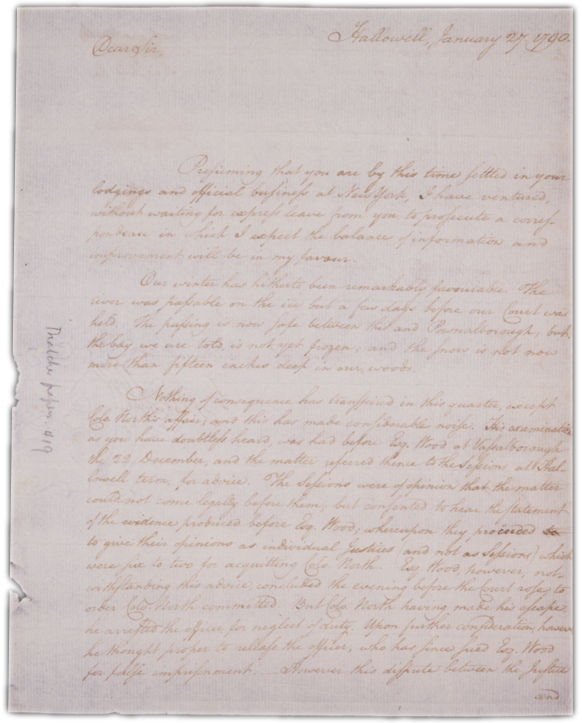 Hallowell, January 27, 1790.
Dear Sir,
Presuming that you are by this time settled in your
lodgings and official business at New York, I have ventured,
without waiting for express leave from you to prosecute a corres-
pondence in which I expect the balance of information and
improvement will be in my favour.
Our winter has hitherto been remarkably favourable. The
river was passable on the ice but a few days before our Court was
held. The passing is now safe between this and Pownalborough, but
the bay we are told is not yet frozen, and the snow is not now
more than fifteen inches deep in our woods.
Nothing of consequence has transpired in this quarter, except
Colo. North's affair, and this has made considerable noise. His examination
as you have doubtless heard, was had before Esq. Wood at Vassalborough
the 22 December, and the matter referred thence to the Sessions at Hal-
lowell term, for advice. The Sessions were of opinion that the matter
could not come legally before them, but consented to hear the statement
of the evidence produced before Esq. Wood, whereupon they proceeded to
to give their opinions as individual Justices (and not as Sessions) which
were six to two for acquitting Colo. North. Esq. Wood, however, not-
withstanding this advice, concluded the evening before the Court rose, to
order Colo. North committed. But Colo. North having made his escape,
he arrested the officer, for neglect of duty. Upon further consideration, however
he thought proper to release the officer, who has since sued Esq. Wood
for false imprisonment. However this dispute between the Justice
and
Thatcher papers #19